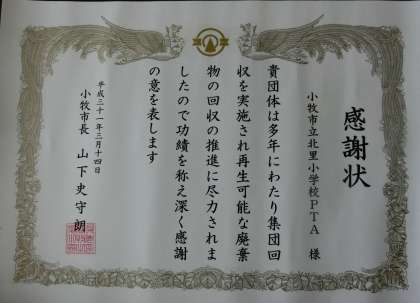 感謝状
小牧市立北里小学校PTA 様
貴団体は多年にわたり集団回
収を実施され再生可能な廃棄
物の回収の推進に尽力されま
したので功績を称え深く感謝
の意を表します
平成三十一年三月十四日
小牧市長 山下史守朗